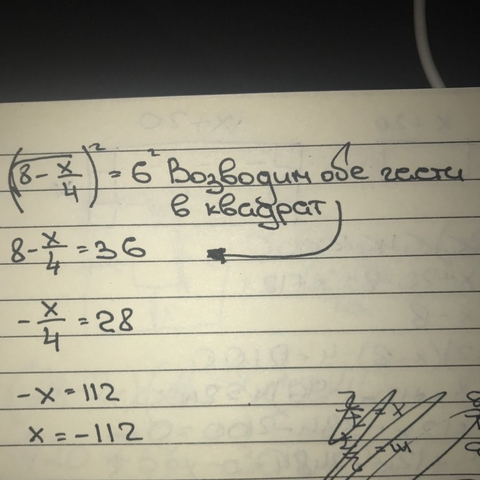 (√(8 - x/4))² = 6² Возводим обе части
в квадрат
8 - x/4 = 36
- x/4 = 28
- x = 112
x = -112